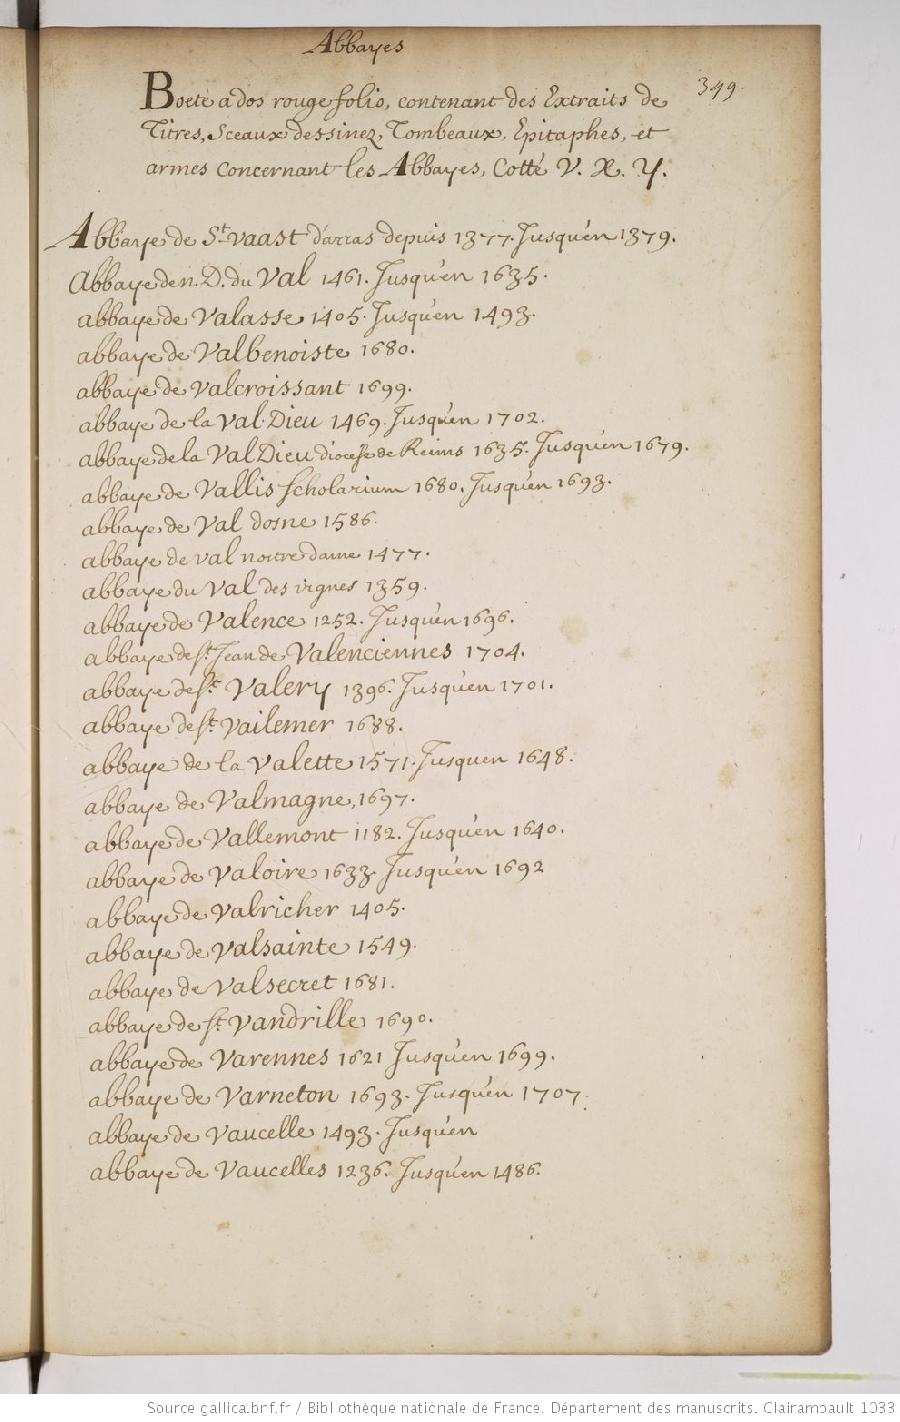 Abbayes
349.
Boete a dos rouge folio, contenant des Extraits de
Titres, Sceaux dessinez, Tombeaux, Epitaphes, et
armes concernant les Abbayes, Cotté V. X. Y.
Abbaye de St. vaast d'arras depuis 1377. Jusqu'en 1379.
Abbaye de n. D. du Val 1461. Jusqu'en 1635.
abbaye de Valasse 1405. Jusqu'en 1493.
abbaye de Valbenoiste 1680.
abbaye de Valcroissant 1699.
abbaye de la Val-Dieu 1469. Jusqu'en 1702.
abbaye de la Val Dieu diocese de Reims 1635. Jusqu'en 1679.
abbaye de Vallis scholarium 1680. Jusqu'en 1693.
abbaye de Val dosne 1586.
abbaye de val nostre dame 1477.
abbaye du Val des vignes 1359.
abbaye de Valence 1252. Jusqu'en 1696.
abbaye de st. Jean de Valenciennes 1704.
abbaye de st. Valery 1396. Jusqu'en 1701.
abbaye de st. Vailemer 1688.
abbaye de la Valette 1571. Jusquen 1648.
abbaye de Valmagne, 1697.
abbaye de Vallemont 1182. Jusqu'en 1640.
abbaye de Valoire 1633. Jusqu'en 1692
abbaye de Valricher 1405.
abbaye de Valsainte 1549.
abbaye de Valsecret 1681.
abbaye de st. Vandrille 1690.
abbaye de Varennes 1621 Jusqu'en 1699.
abbaye de Varneton 1693. Jusqu'en 1707.
abbaye de Vaucelle 1493. Jusqu'en
abbaye de Vaucelles 1236. Jusqu'en 1486.
Source gallica.bnf.fr / Bibliothèque nationale de France. Département des manuscrits. Clairambault 1033